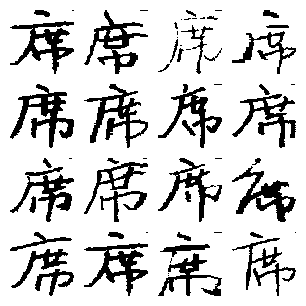 席席席席
席席席席
席席席席
席席席席